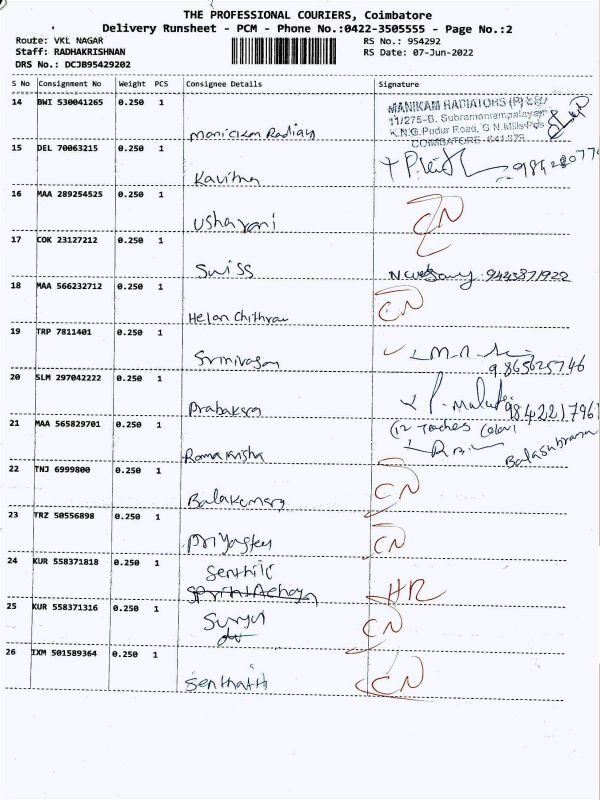 THE PROFESSIONAL COURIERS, Coimbatore
Delivery Runsheet - PCM - Phone No.:0422-3505555 - Page No.:2
Route: VKL NAGAR
RS No.: 954292
Staff: RADHAKRISHNAN
RS Date: 07-Jun-2022
DRS No.: DCJB95429202
S No Consignment No Weight PCS Consignee Details Signature
14 BWI 530041265 0.250 1
MANIKAM RADIATORS (P) LTD
11/275-B, Subramaniampalayam
K.N.G. Pudur Road, G.N.Mills Pos
COIMBATORE - 641 029
15 DEL 70063215 0.250 1
Kavitha
16 MAA 289254525 0.250 1
Usharani
CN
17 COK 23127212 0.250 1
Swiss
9443871922
18 MAA 566232712 0.250 1
Helan Chithra
CN
19 TRP 7811401 0.250 1
Srinivasan
9865625746
20 SLM 297042222 0.250 1
Prabakaran
21 MAA 565829701 0.250 1
Ramakrisha
22 TNJ 6999800 0.250 1
Balakumar
CN
23 TRZ 50556898 0.250 1
CN
24 KUR 558371818 0.250 1
Senthil
HR
25 KUR 558371316 0.250 1
Surya
CN
26 IXM 501589364 0.250 1
CN